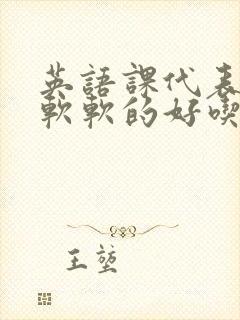 英語課代表
軟軟的好喫
王堃